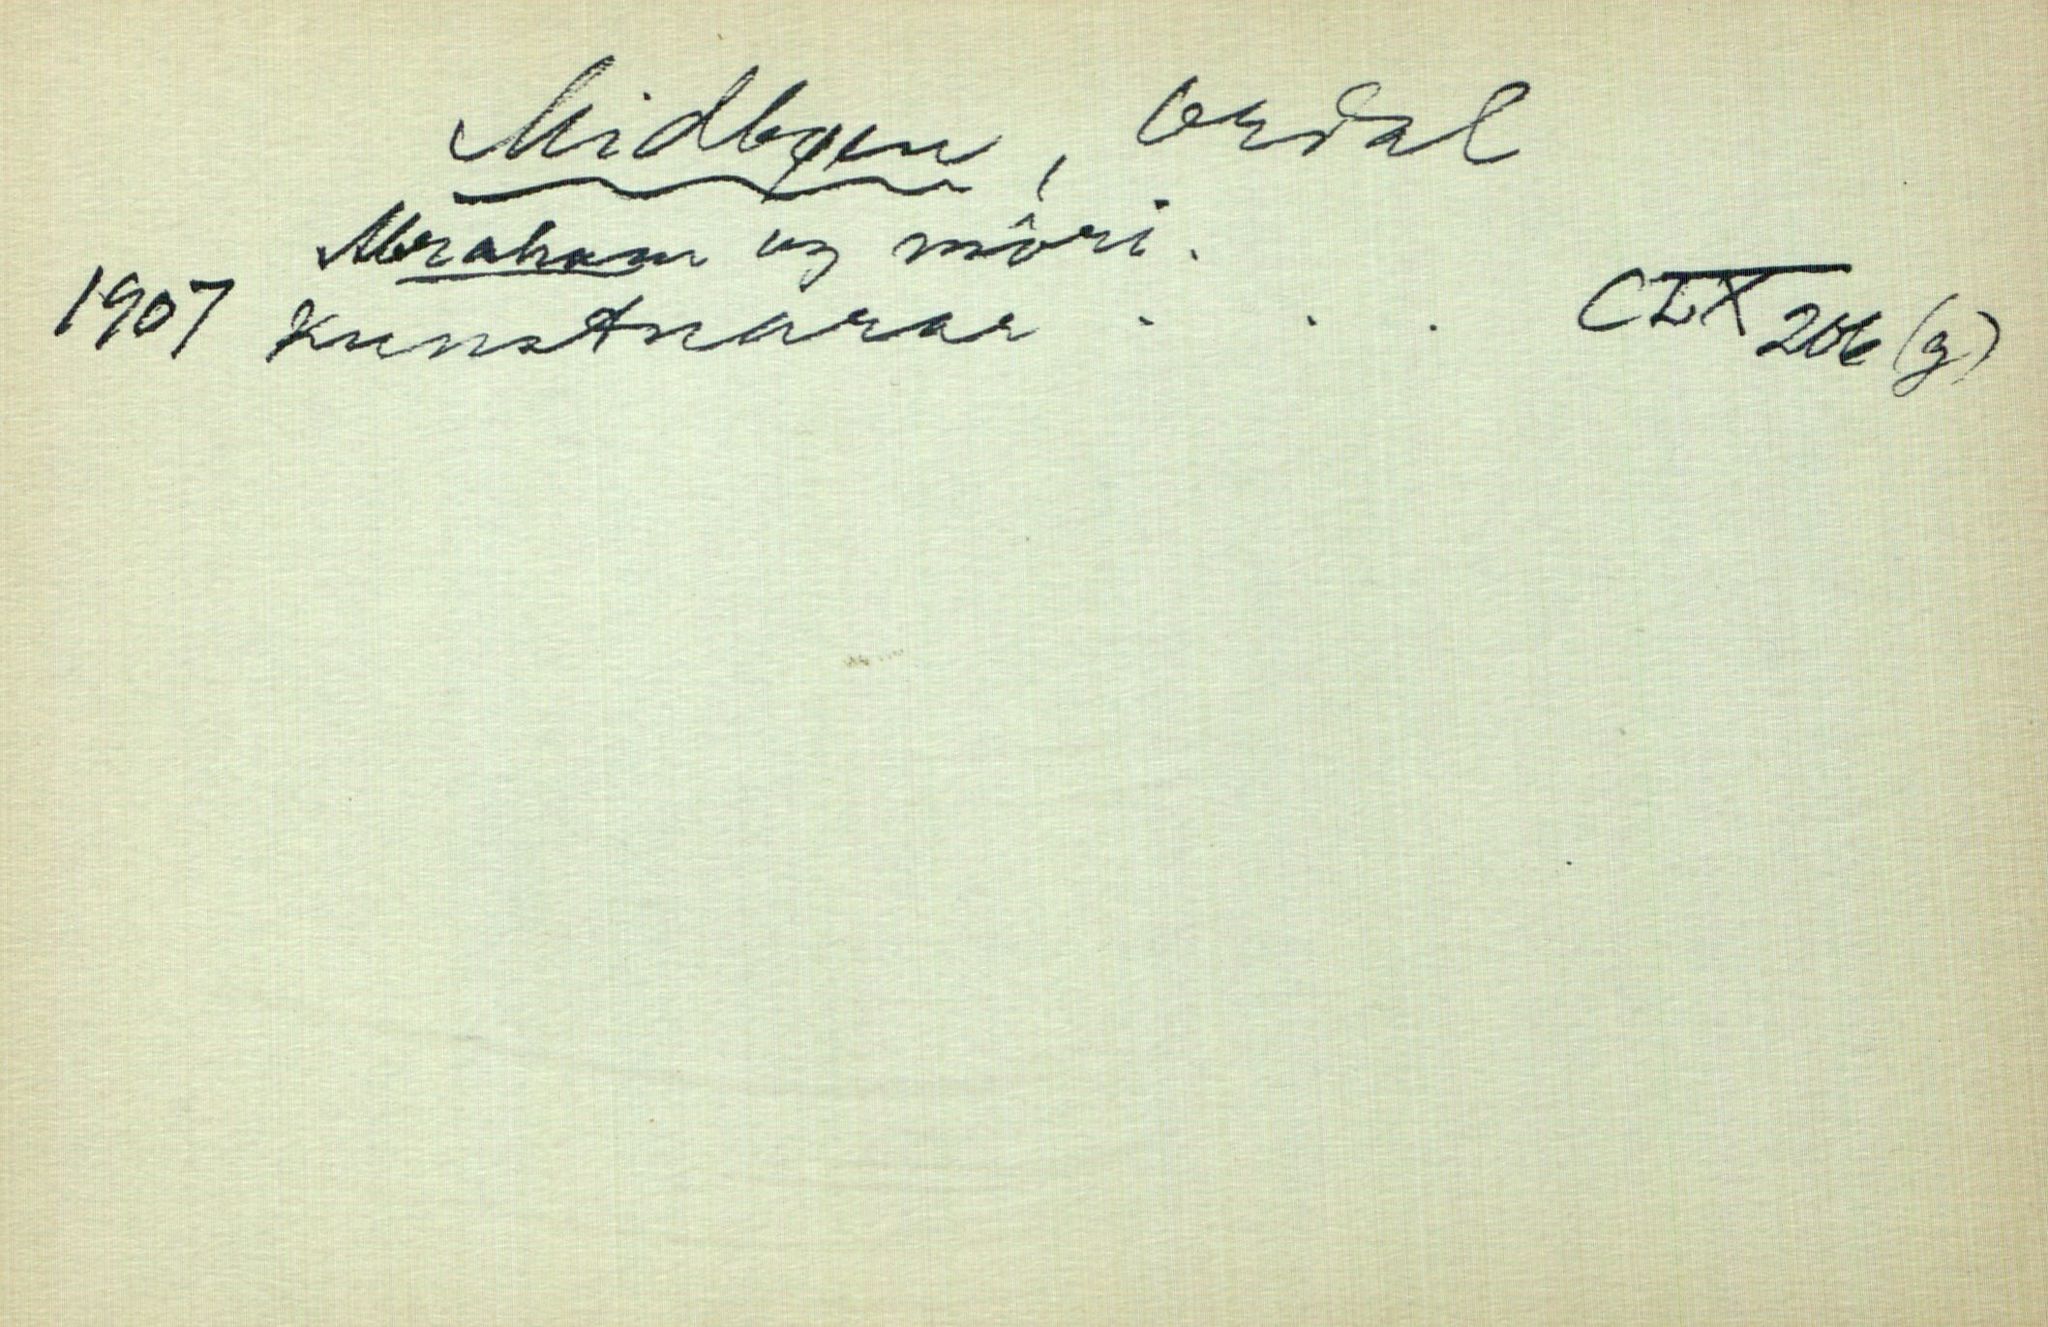 Midbøen, Ordal
Abraham og môri.
1907 Kunstnarar . . . CLX 206 (g)